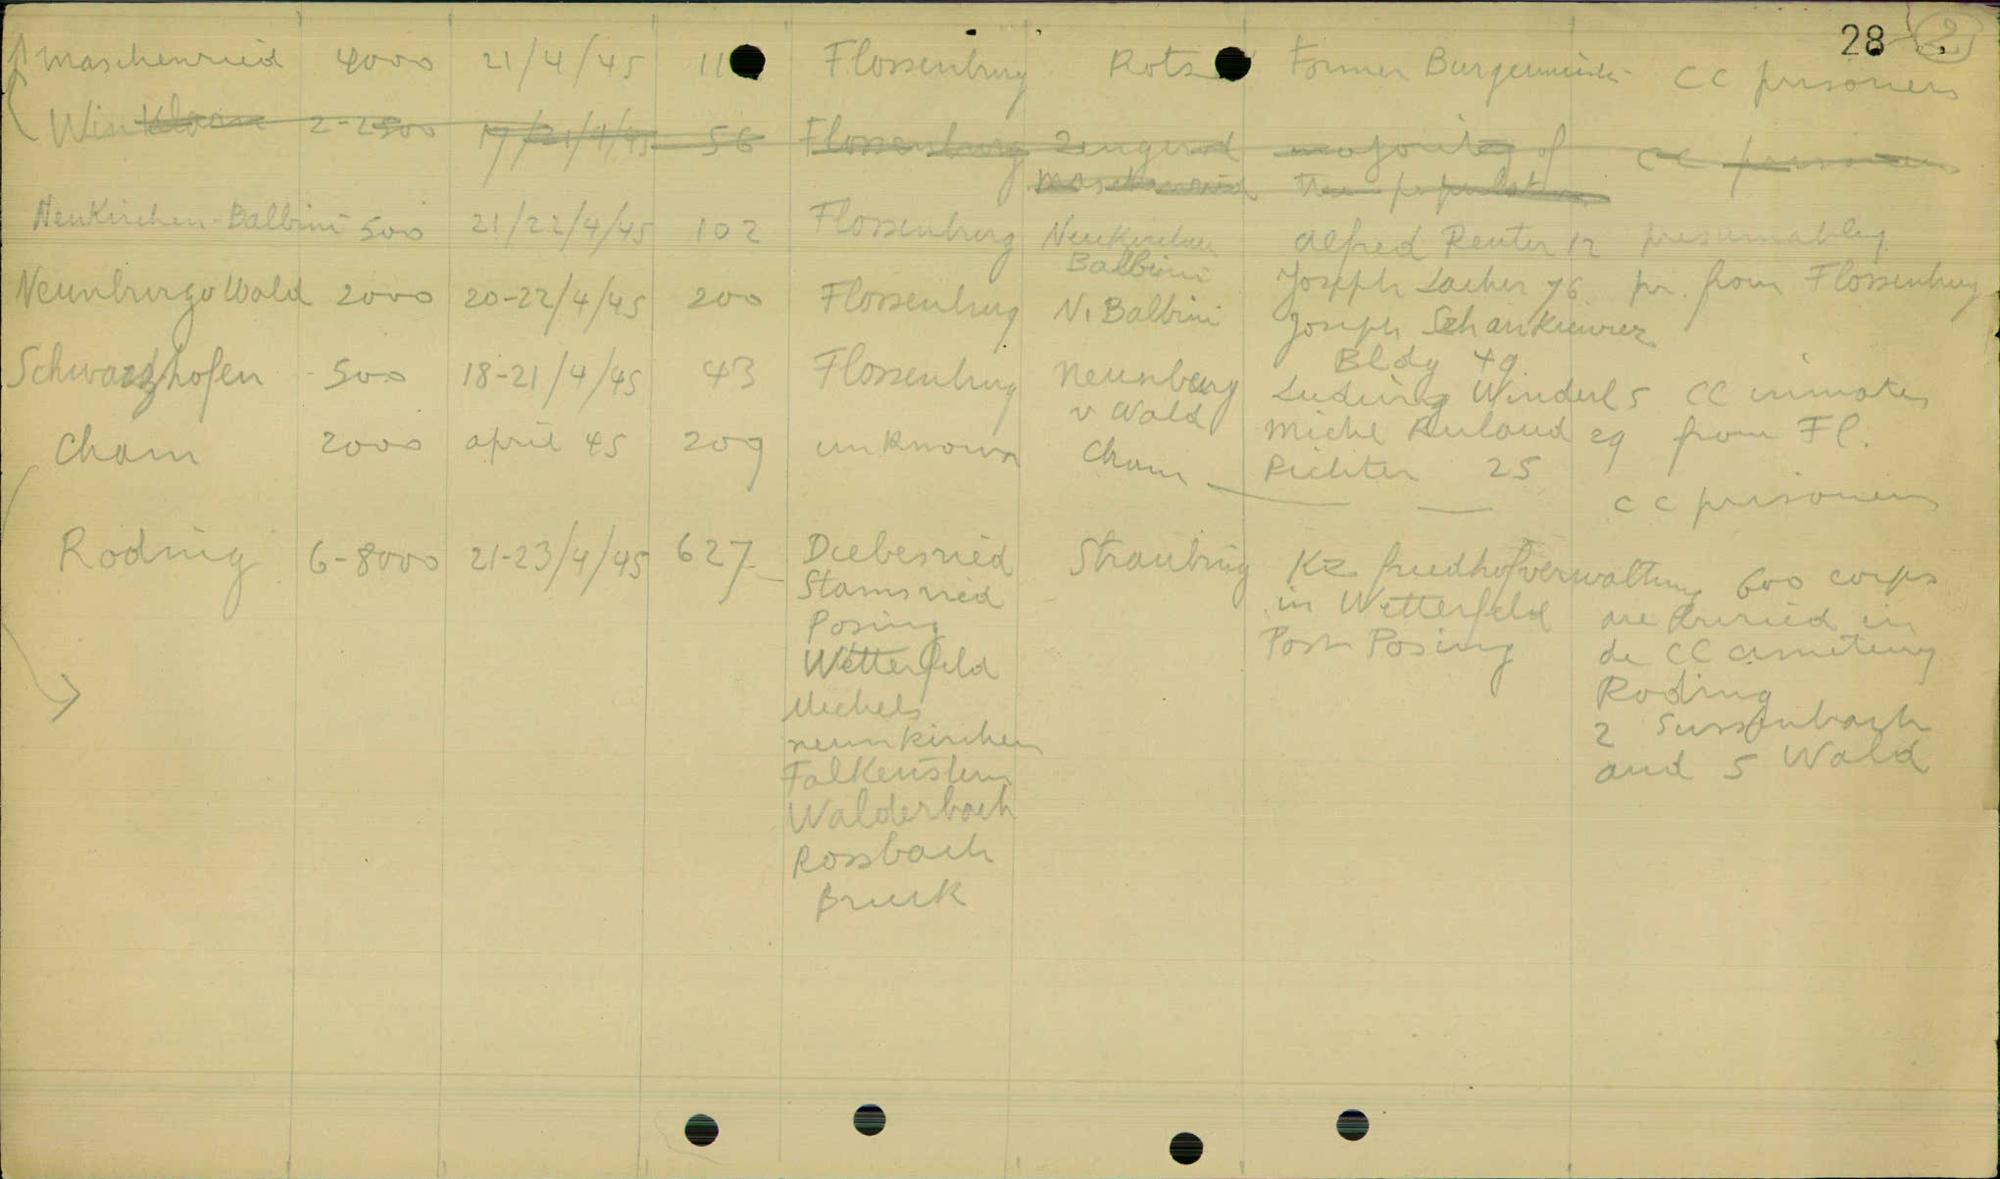 28 2
Maschenried 4000 21/4/45 11 Flossenburg Rotz Former Burgermeister CC prisoners
Winklarn 2-2500 17/21/4/45 56 Flossenburg Zengerod majority of CC prisoners
Maschenried the population
Neukirchen-Balbini 500 21/22/4/45 102 Flossenburg Neukirchen Alfred Reuter 12 presumably
Balbini
Neunburg v Wald 2000 20-22/4/45 200 Flossenburg N. Balbini Joseph Lacher 76 pr. from Flossenburg
Joseph
Bldg 49
Schwarzhofen 500 18-21/4/45 43 Flossenburg Neunburg Ludwig Winderl 5 CC inmates
v Wald
Michl Ruland 29 from Fl.
Cham 2000 april 45 209 unknown Cham Richter 25
CC prisoners
Roding 6-8000 21-23/4/45 627 Diebesried Straubing KZ friedhofverwaltung 600 corps
Stamsried in Wetterfeld are buried in
Posing Post Posing de CC cemetery
Wetterfeld Roding
Michels 2 Sussenbach
neunkirchen and 5 Wald
Falkenstein
Walderbach
Rossbach
Bruck